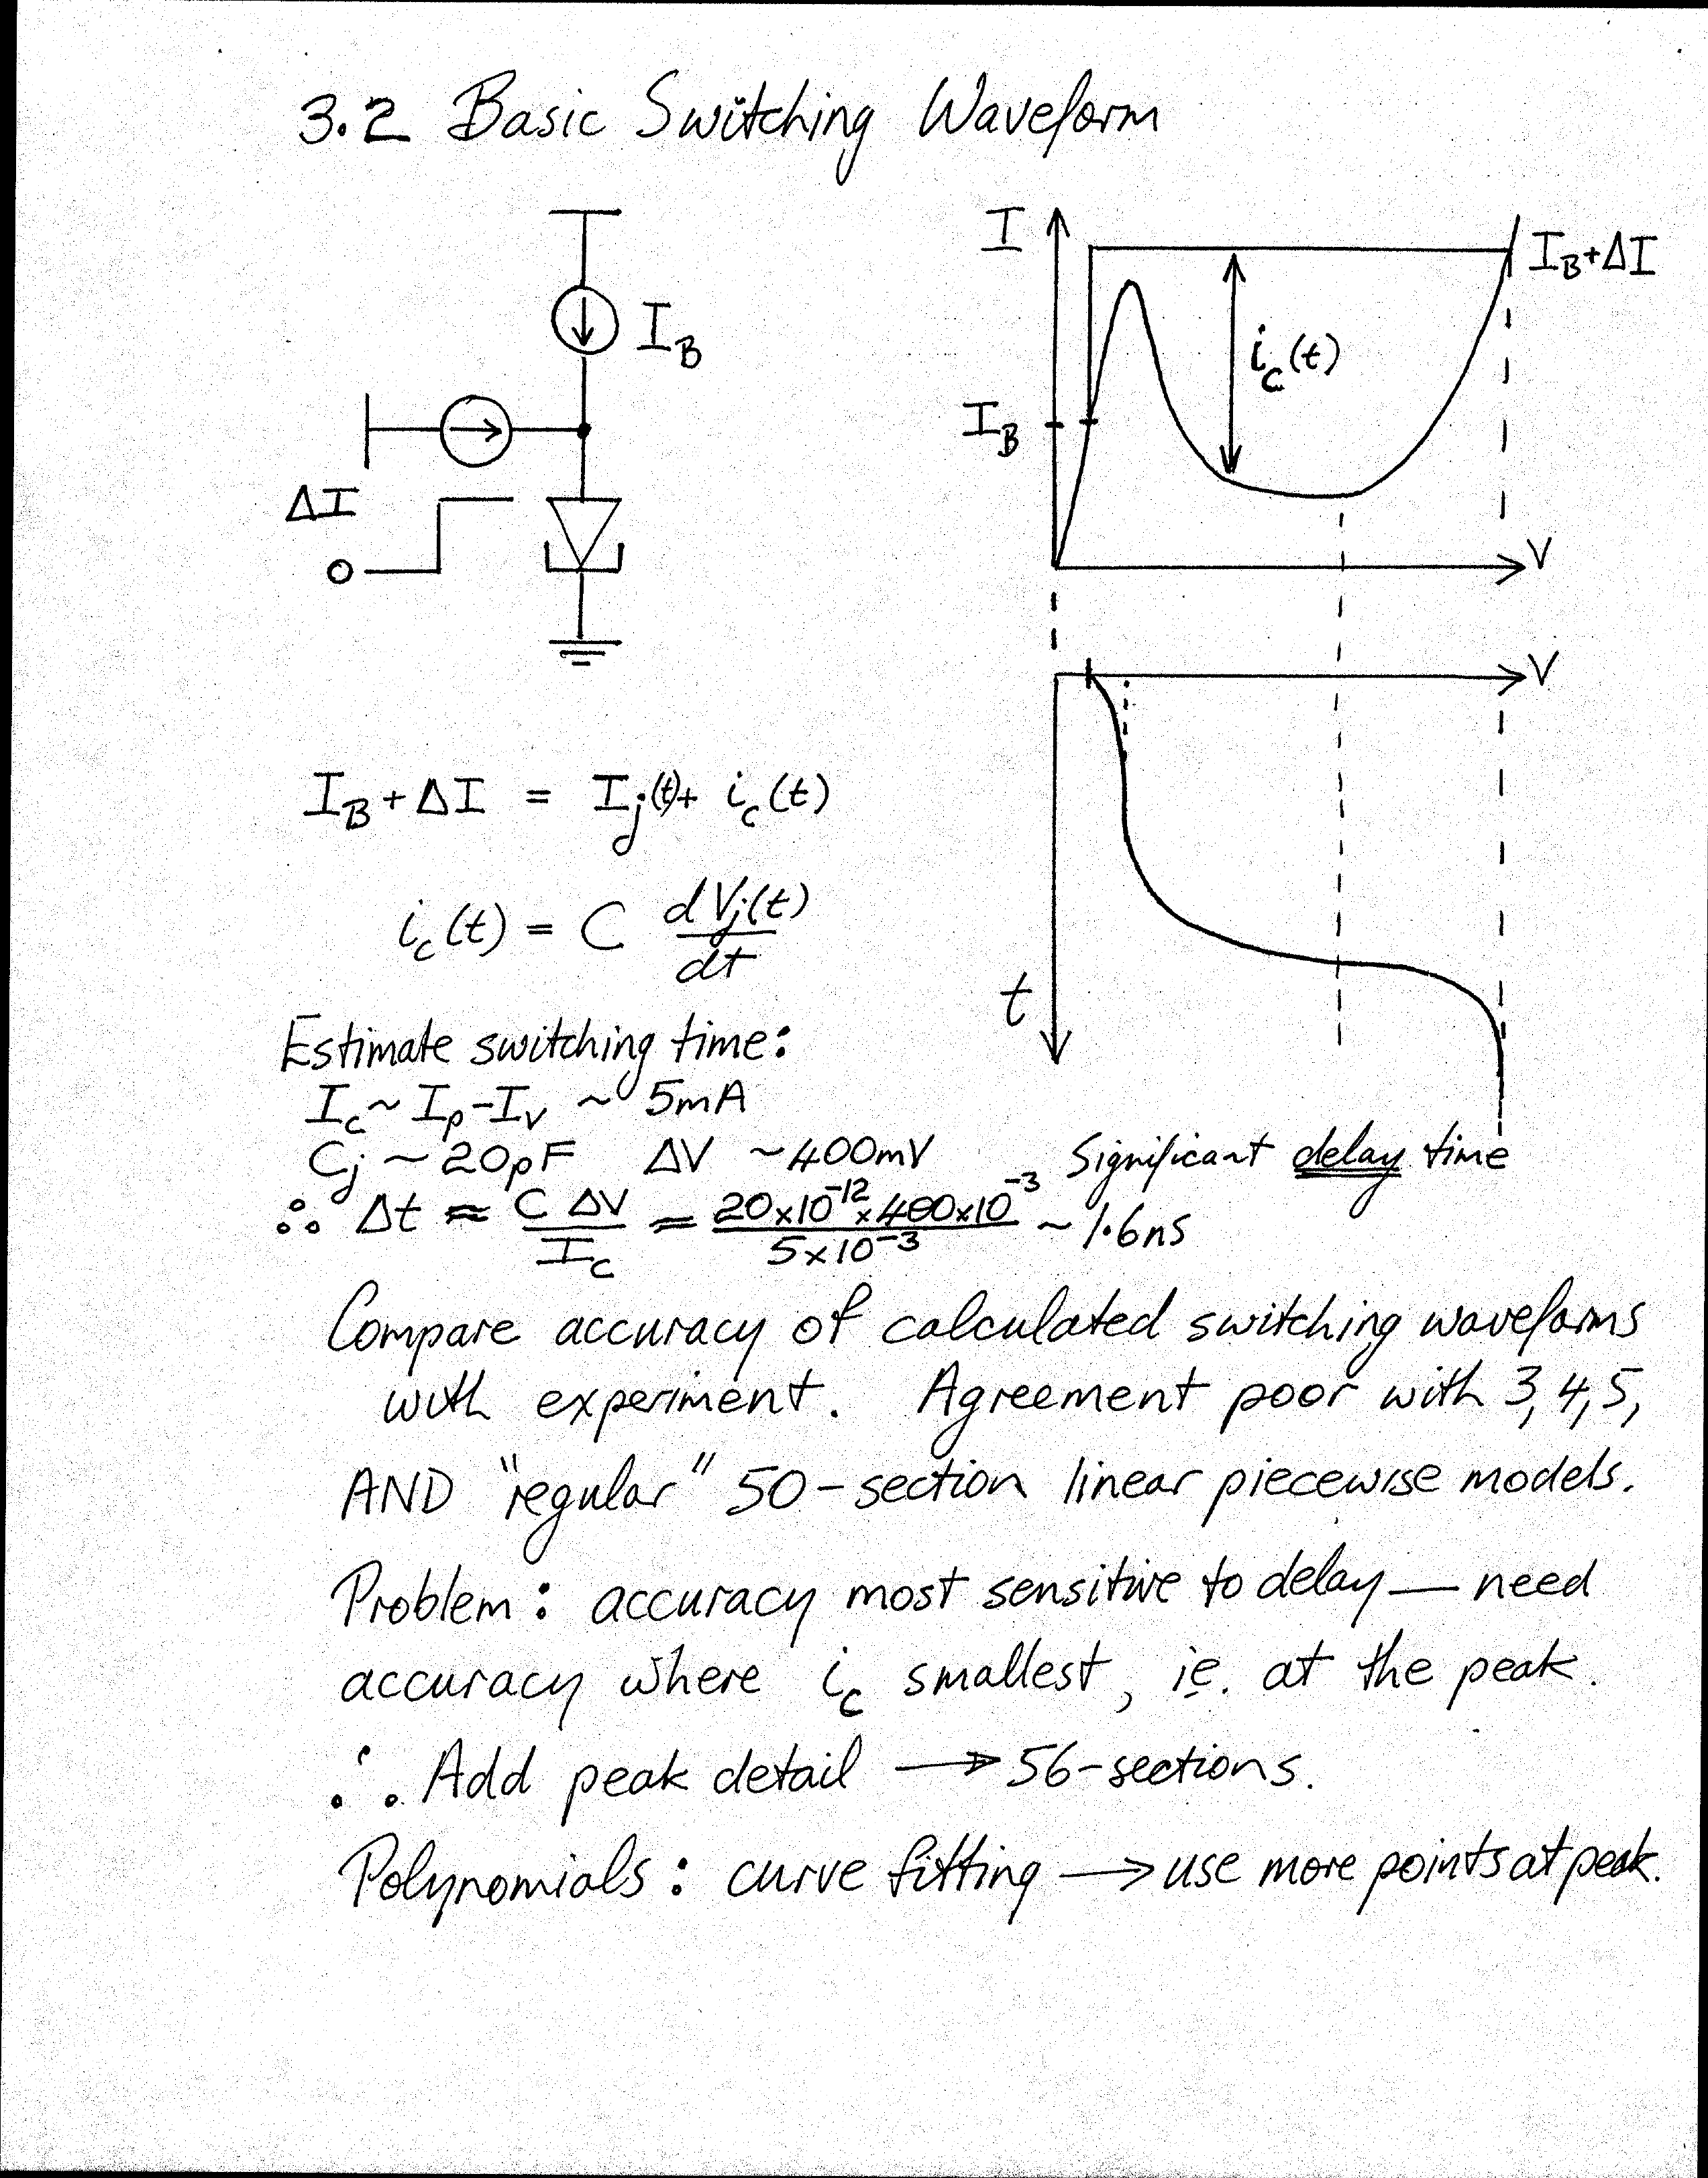 3.2 Basic Switching Waveform
I_B
ΔI
I
I_B+ΔI
i_c(t)
I_B
V
V
t
I_B + ΔI = I_j(t) + i_c(t)
i_c(t) = C dV_j(t)/dt
Estimate switching time:
I_c ~ I_p-I_v ~ 5mA
C_j ~ 20pF ΔV ~400mV
Significant delay time
∴ Δt ≈ C ΔV/I_c = 20x10^-12 x 400x10^-3/5x10^-3 ~ 1.6ns
Compare accuracy of calculated switching waveforms
with experiment. Agreement poor with 3,4,5,
AND "regular" 50-section linear piecewise models.
Problem: accuracy most sensitive to delay — need
accuracy where i_c smallest, ie. at the peak.
∴ Add peak detail → 56-sections.
Polynomials: curve fitting → use more points at peak.